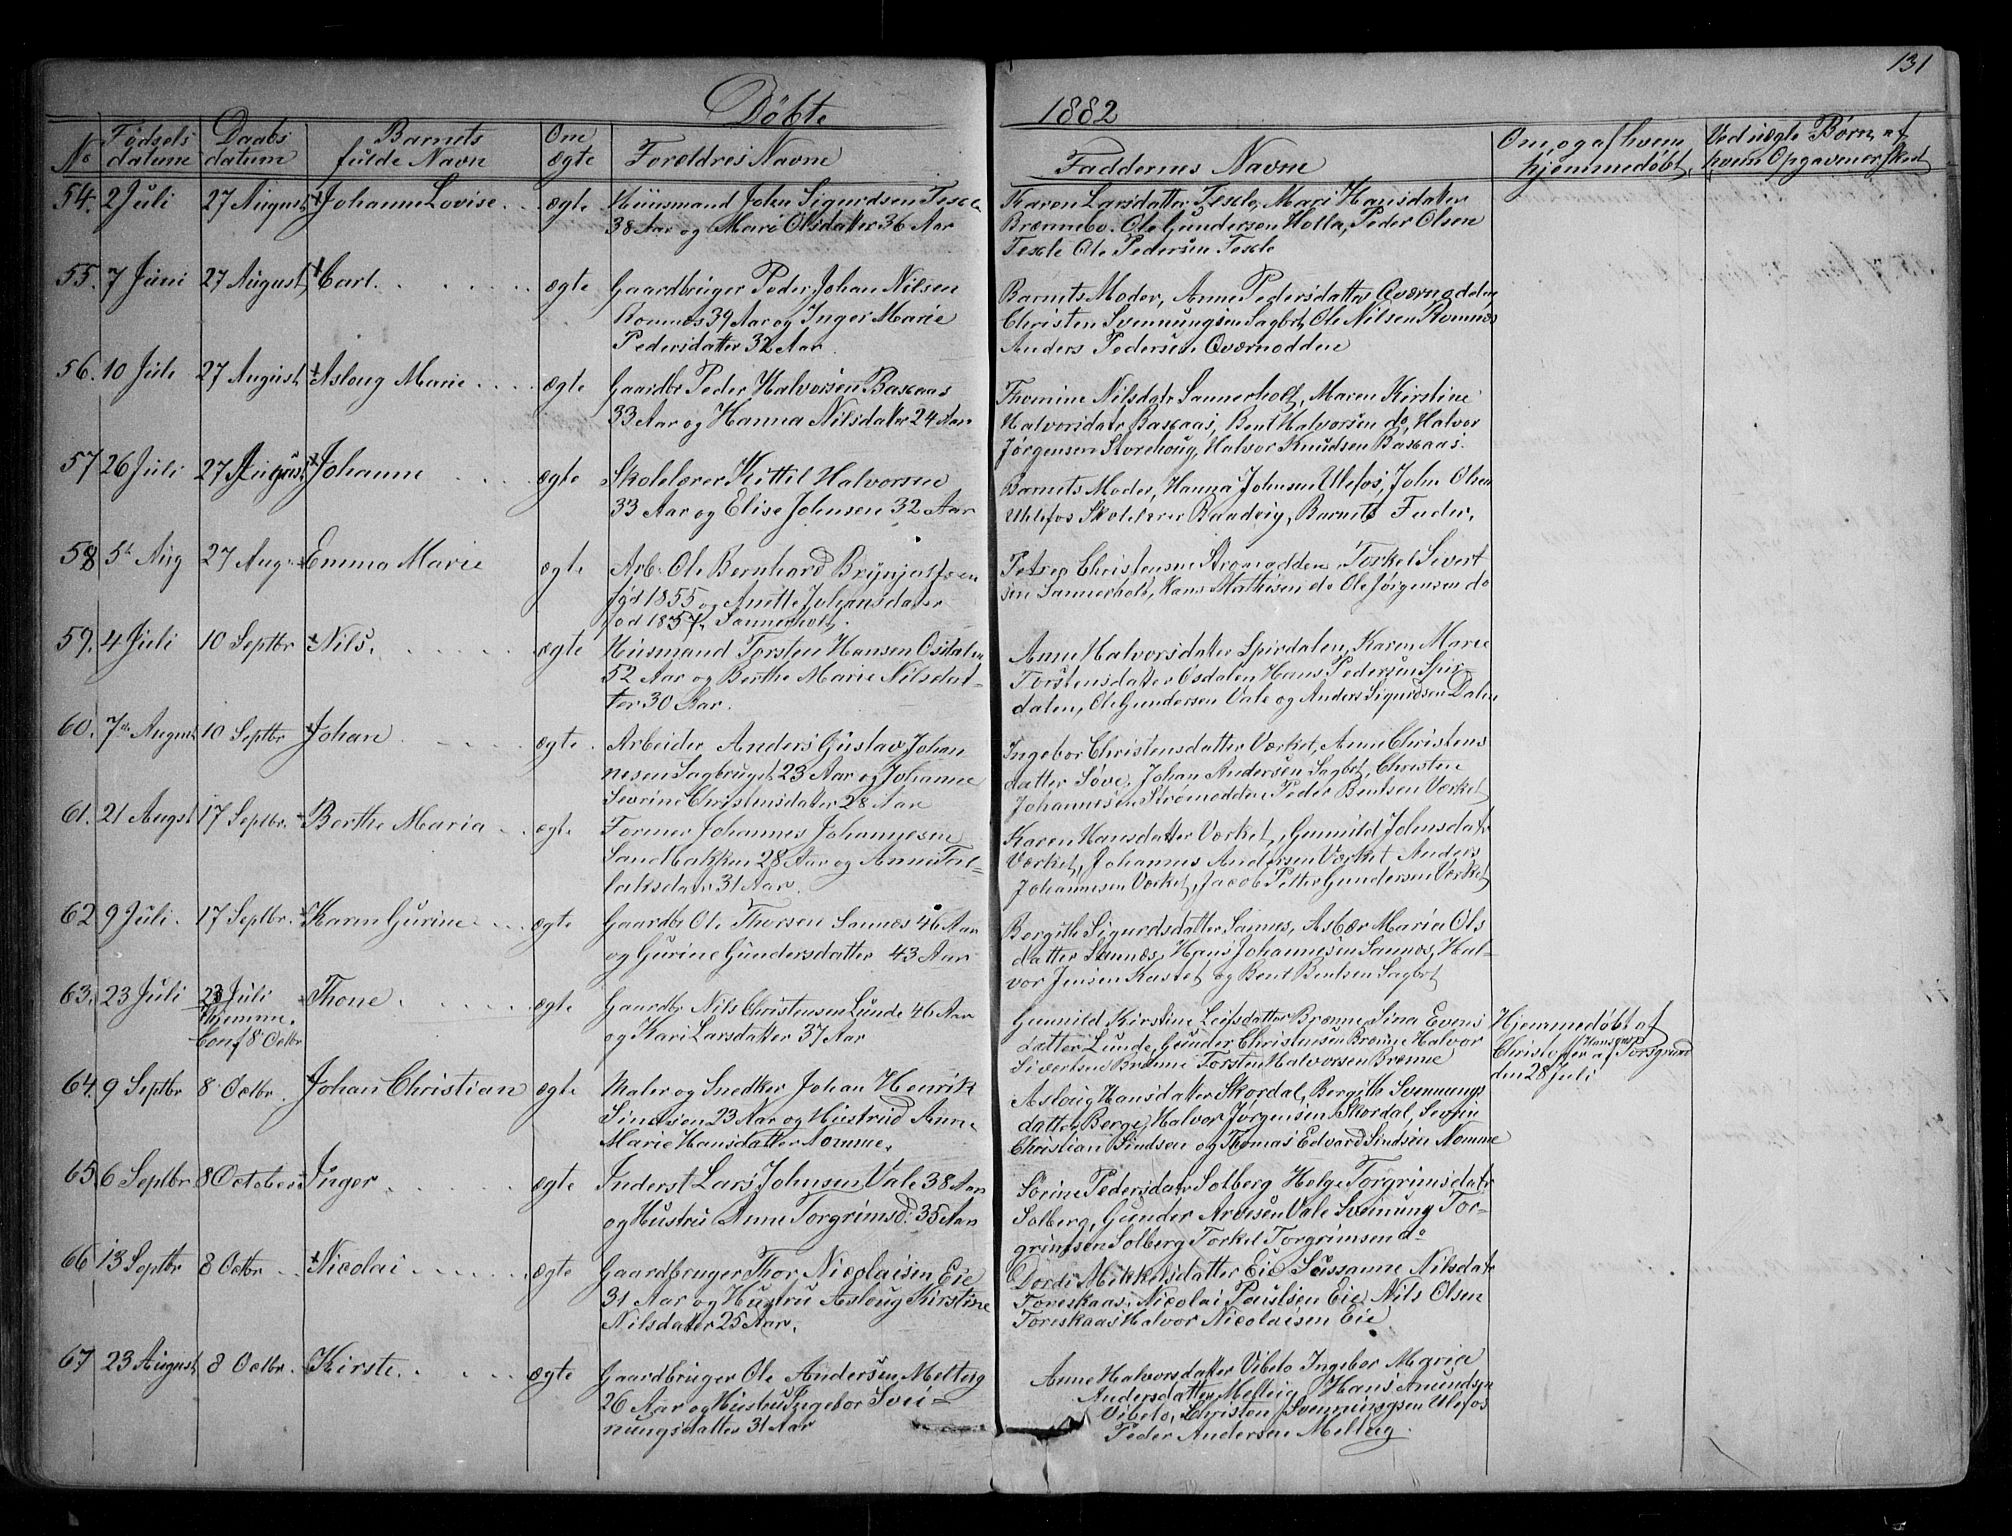 131
Døbte 1882
No Fødsels datum Daabs datum Barnets fulde Navn Om ægte Forældres Navne Faddernes Navne Om, og af hvem hjemmedøbt, Ved uægte Børn, af hvem Opgaven er skeet
54. 2 Juli 27 August Johanne Lovise ægte Huusmand John Sigurdsen
38 Aar og Mari Olsdatter 36 Aar
Karen Larsdatter, Mari Hansdatter
Brænnebo. Ole Gundersen Holla, Peder Olsen
Ole Pedersen
55. 7 Juni 27 August Carl. ægte Gaardbruger Peder Johan Nilsen
Romnæs 39 Aar og Inger Marie
Pedersdatter 32 Aar
Barnets Moder, Anne Pedersdatter Qværnodden
Christen Svennungsen Sagbrt, Ole Nilsen Romnæs
Anders Pedersen Qværnodden
56. 10 Juli 27 August Aslaug Marie ægte Gaardbr Peder Halvorsen Baskaas
33 Aar og Hanna Nilsdatter 24 Aar
Thomine Nilsdatr Sannerholt, Maren Kirstine
Halvorsdatr Baskaas, Bent Halvorsen do, Halvor
Jørgensen Storehoug, Halvor Knudsen Baskaas.
57 26 Juli 27 August Johanne ægte Skolelærer Kittil Halvorsen
33 Aar og Elise Johnsen 32 Aar
Barnets Moder, Hanna Johnsen Ulefos, John Olsen
Uhlefos Skolelærer Baadvig, Barnets Fader,
58 5te Aug 27 Aug Emma Marie ægte Arb. Ole Bernhard Brynjulfsen
fød 1855 og Anette Johansdatter
fød 1857, Sannerholt.
Christensen Strømodden, Torkel Sivert
sen Sannerholt, Hans Mathisen do Ole Jørgensen do
59. 4 Juli 10 Septbr Nils. ægte Huusmand Torsten Hansen Osdalen
52 Aar og Berthe Marie Nilsdat-
ter 30 Aar.
Anne Halvorsdatter Spirdalen, Karen Marie
Torstensdatter Osdalen Hans Pedersen Spir-
dalen, Ole Gundersen Vale og Anders Sigurdsen Dalen
60. 7de August 10 Septbr Johan ægte. Arbeider Anders Gustav Johan
nesen Sagbruget 23 Aar og Johanne
Severine Christensdatter 28 Aar
Ingebor Christensdatter Værket, Anne Christens
datter Søve, Johan Andersen Sagbrt, Christen
Johannesen Strømodden Peder Bentsen Værket
61. 21 Augst 17 Septbr. Berthe Maria ægte Former Johannes Johannesen
Sandbakken 28 Aar og Anne Tol-
laksdatr 31 Aar.
Karen Hansdatter Værket, Gunnild Johnsdatr
Værket, Johannes Andersen Værket Anders
Johannesen Værket, Jacob Petter Gundersen Værket
62 9 Juli. 17 Septbr. Karen Gurine ægte Gaardbr Ole Thorsen Sannes 46 Aar
og Gurine Gundersdatter 43 Aar
Bergith Sigurdsdatter Sannes, Asbær Maria Ols
datter Sannes, Hans Johannesen Sannes, Hal-
vor Jensen Kastet og Bent Bentsen Sagbrt
63. 23 Juli 28 Juli
Hjemme.
Conf 8 Octbr
Thone ægte Gaardbr Nils Christensen Lunde 46 Aar
og Kari Larsdatter 37 Aar
Gunnild Kirstine Leifsdatter Brenne, Sina Evens
datter Lunde, Gunder Christensen Brenne Halvor
Sivertsen Brenne Torsten Halvorsen Brenne
Hjemmedøbt af
Christoffer Hansen af Porsgrund
den 28 Juli
64. 9 Septbr 8 Octbr. Johan Christian ægte Maler og Snedker Johan Henrik
Sindsen 23 Aar og Hustrud Anne
Marie Hansdatter Nomme.
Aslaug Hansdatter Skordal, Bergith Svennungs
datter Berge, Halvor Jørgensen Skordal, Severin
Christian Sindsen og Thomas Edvard Sindsen Nomme
65. 6 Septbr 8 October Inger ægte Inderst Lars Johnsen Vale 38 Aar
og Hustru Anne Torgrimsd. 35 Aar
Sørine Pedersdatr Solberg Helge Torgrimsdatr
Solberg, Gunder Arvesen Vale Svennung Tor-
grimsen Solberg Torkel Torgrimsen do
66 13 Septbr 8 Octbr Nicolai ægte Gaardbruger Thor Nicolaisen Eie
31 Aar og Hustru Aslaug Kirstine
Nilsdatter 25 Aar.
Dordi Mikkelsdatter Eie Sussanne Nilsdatr
Toreskaas, Nicolai Paulsen Eie, Nils Olsen
Toreskaas Halvor Nicolaisen Eie
67 23 August 8 Octbr. Kirste. ægte Gaardbruger Ole Andersen Melteig
26 Aar og Hustru Ingebor Svei-
nungsdatter 31 Aar
Anne Halvorsdatter Vibeto Ingebor Maria
Andersdatter Melteig, Hans Amundsen
Vibeto, Christen Svenningsen Ulefos
Peder Andersen Melteig.